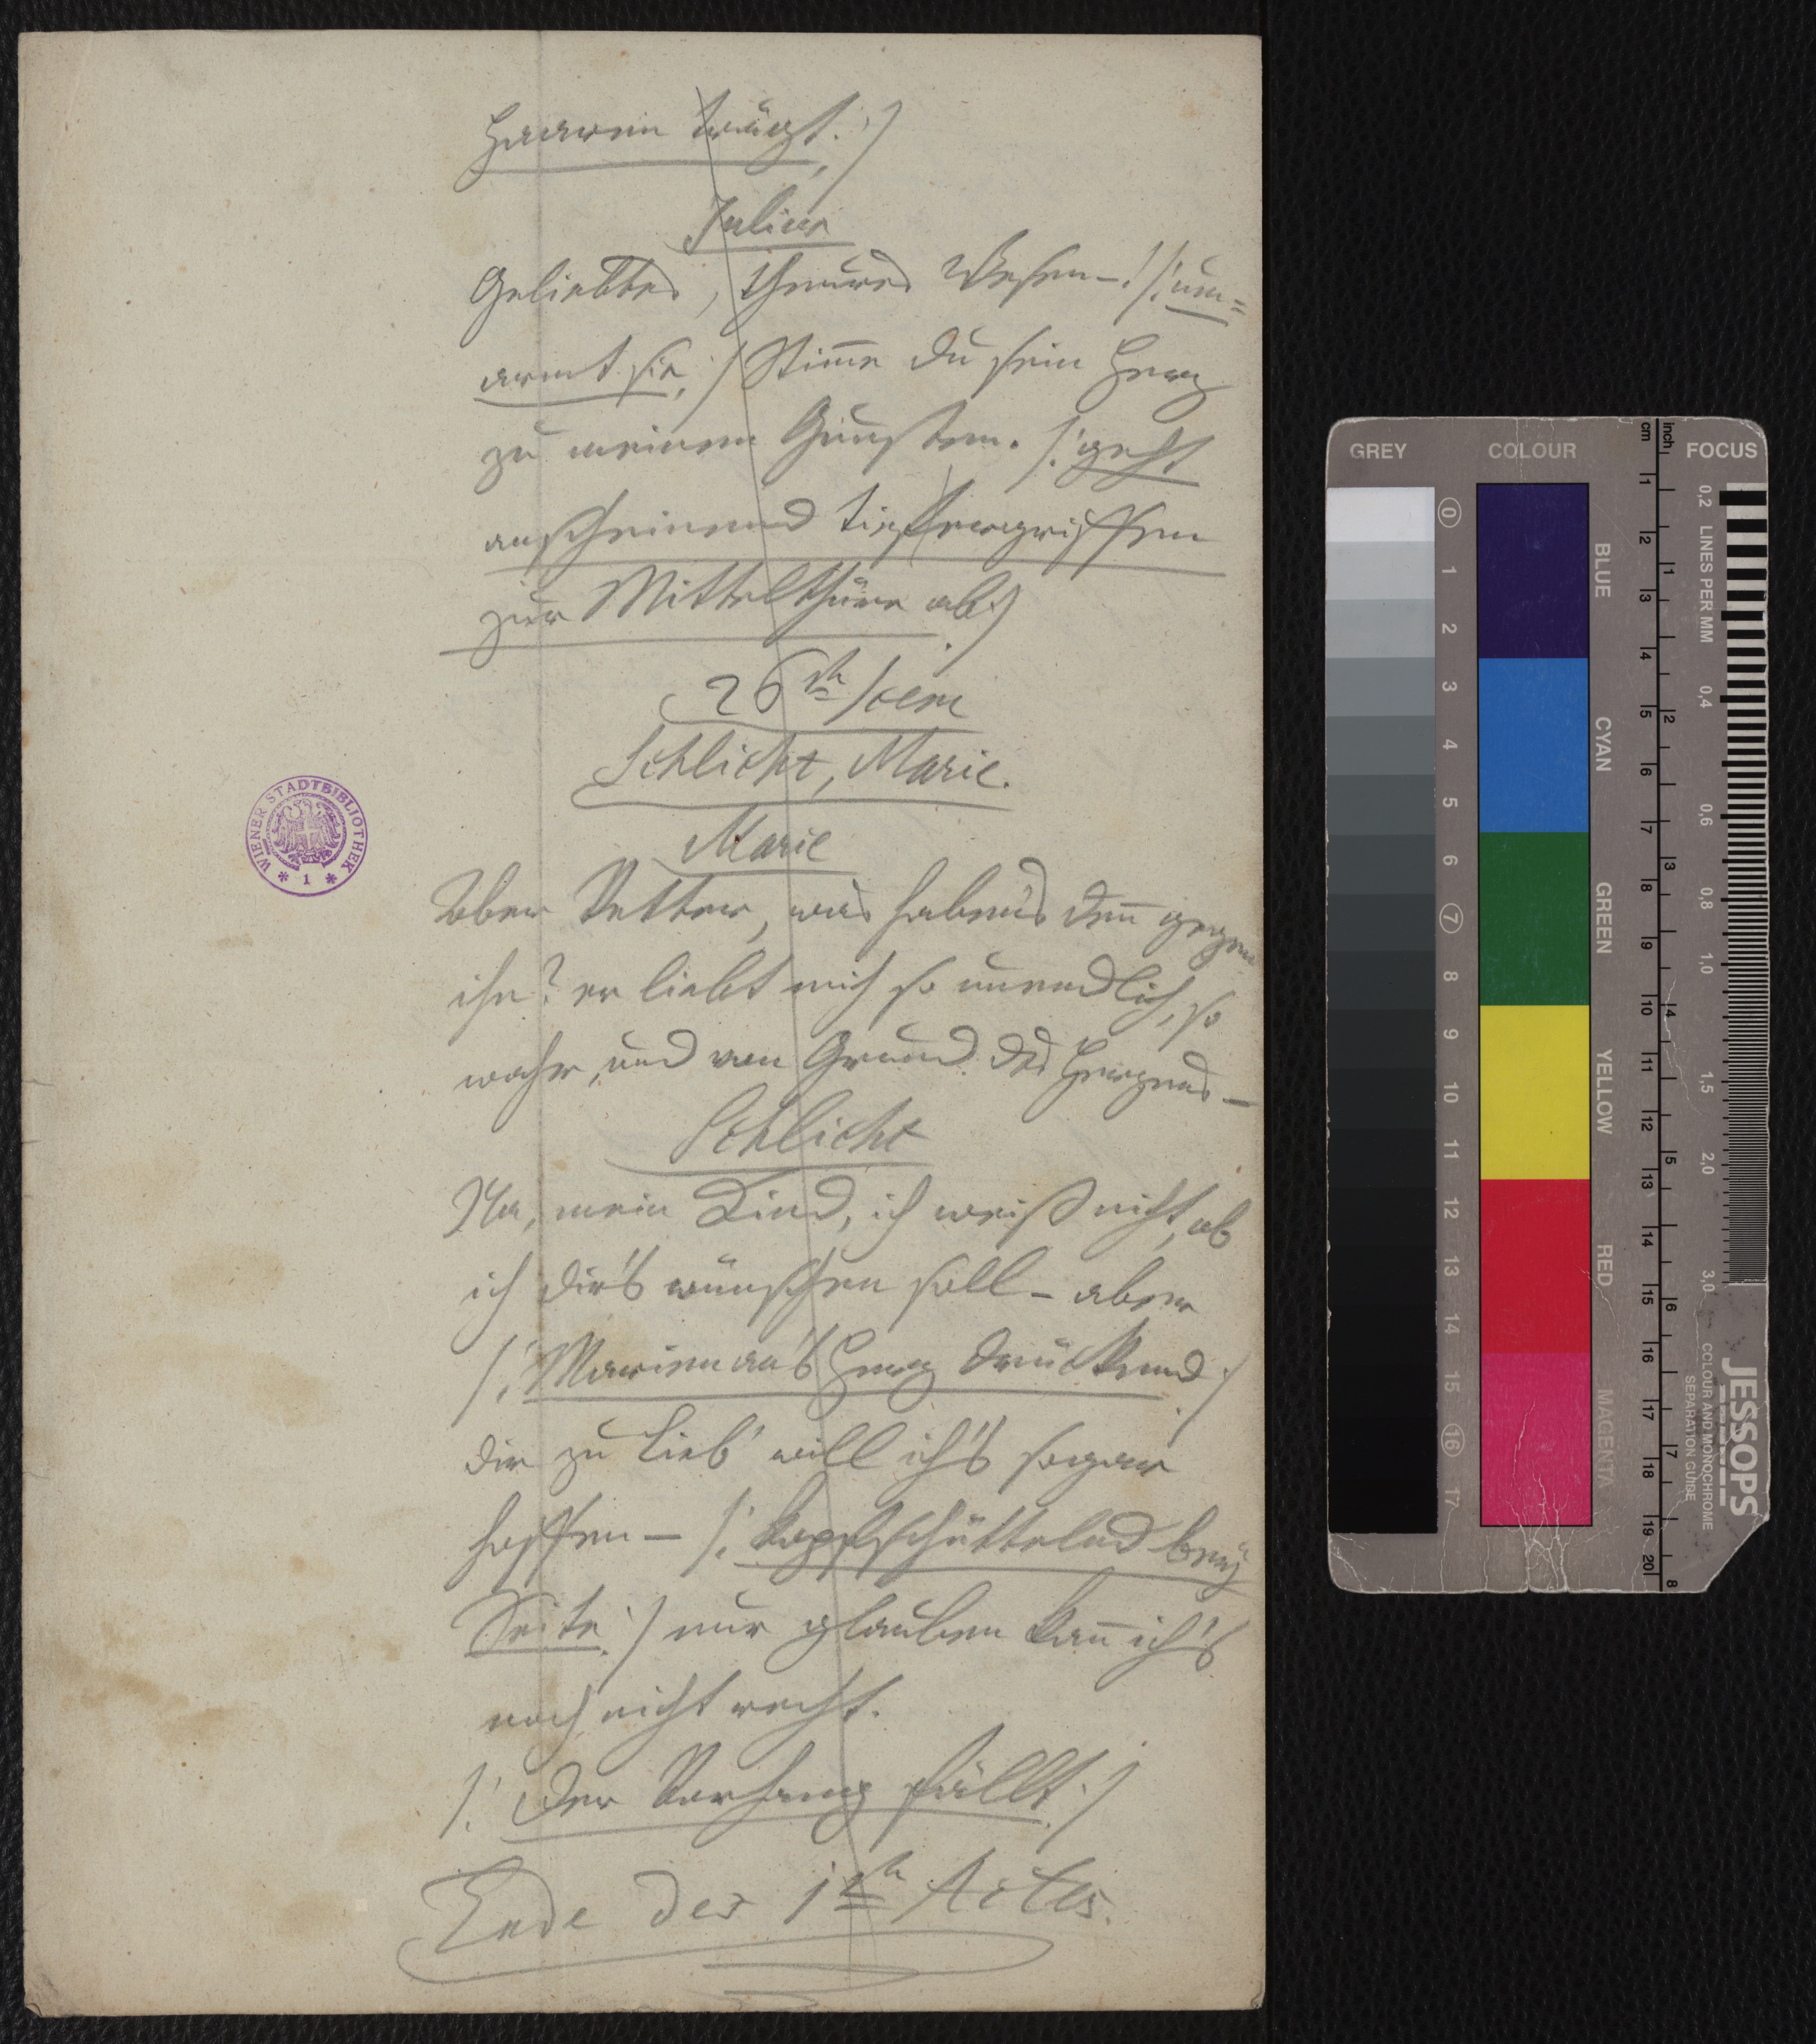 Haaren trägt.:/
Julius
Geliebtes, theures Wesen–! /: um=
armt sie :/ Stim̅e du sein Herz
zu meinen Gunsten. /: geht
anscheinend tiefergriffen
zur Mittelthüre ab :/
26te Scene
Schlicht, Marie.
Marie
Aber Vetter, was haben's den̅ gegen
ihn? er liebt mich so unendlich, so
wahr, und von Grund des Herzens –
Schlicht
Na, mein Kind, ich weiß nicht, ob
ich dir's wünschen soll – aber
/: Marien an's Herz drückend :/
dir zu Lieb' will ich's sogar
hoffen – /: kopfschüttelnd bey
Seite :/ nur glauben kan̅ ich's
noch nicht recht.
/: Der Vorhang fällt :/
Ende des 1ten Actes.
WIENER STADTBIBLIOTHEK
* 1 *
GREY
COLOUR
FOCUS
cm
inch
0 1 2 3 4 5 6 7 8 9 10 11 12 13 14 15 16 17
BLUE
CYAN
GREEN
YELLOW
RED
MAGENTA
1 2 3 4 5 6 7 8 9 10 11 12 13 14 15 16 17 18 19 20
1 2 3 4 5 6 7 8
0,2 LINES PER MM 0,4 0,6 0,8 1,0 1,5 2,0 3,0
JESSOPS
COLOUR AND MONOCHROME
SEPARATION GUIDE